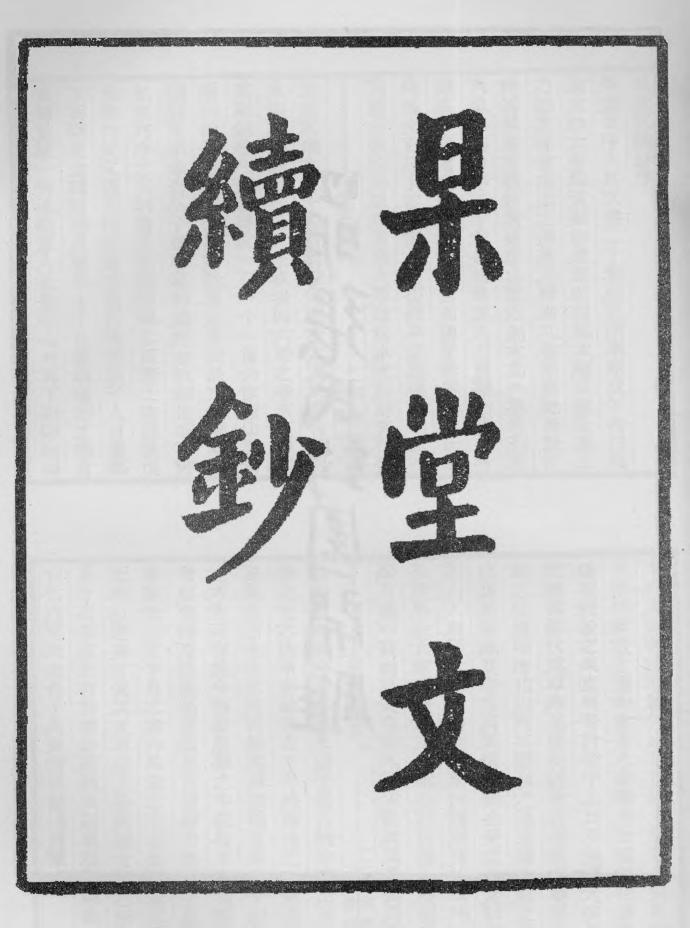 杲堂文
續鈔